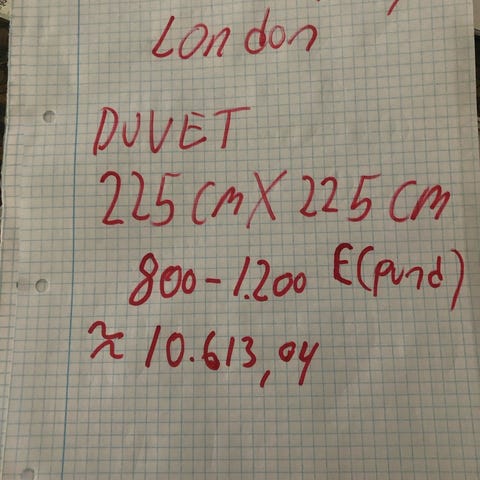 London
DUVET
225 cm X 225 cm
800-1.200 E(pund)
≈ 10.613,04